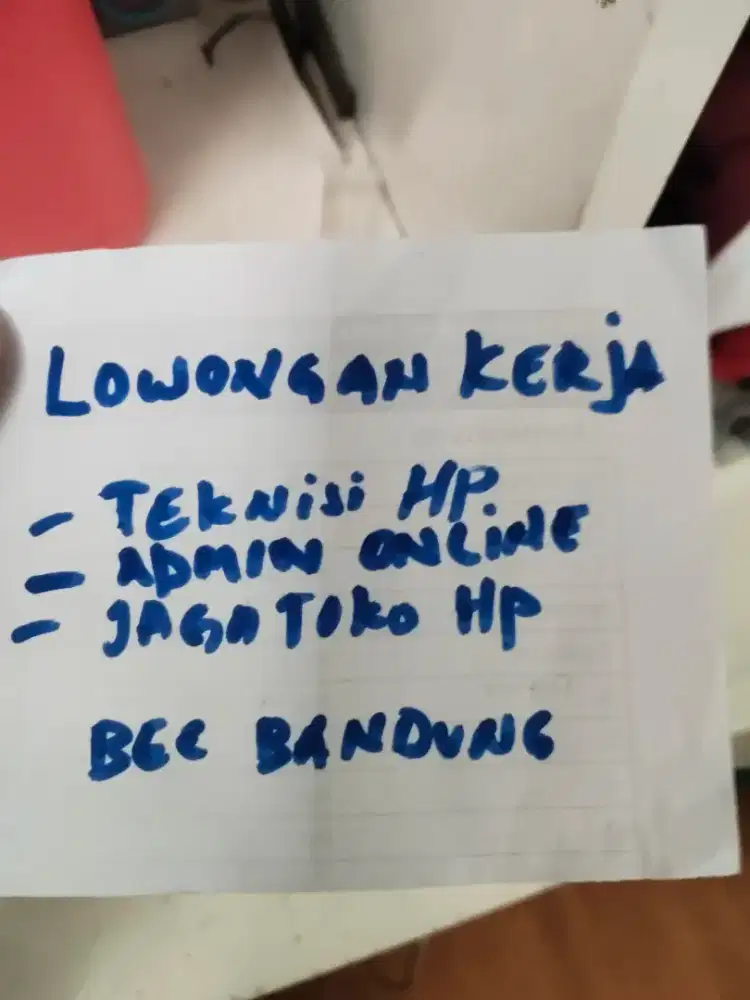 LOWONGAN KERjA
- TEKNiSi HP.
- ADMIN ONLINE
- JAGA TOKO HP
BEC BANDUNG